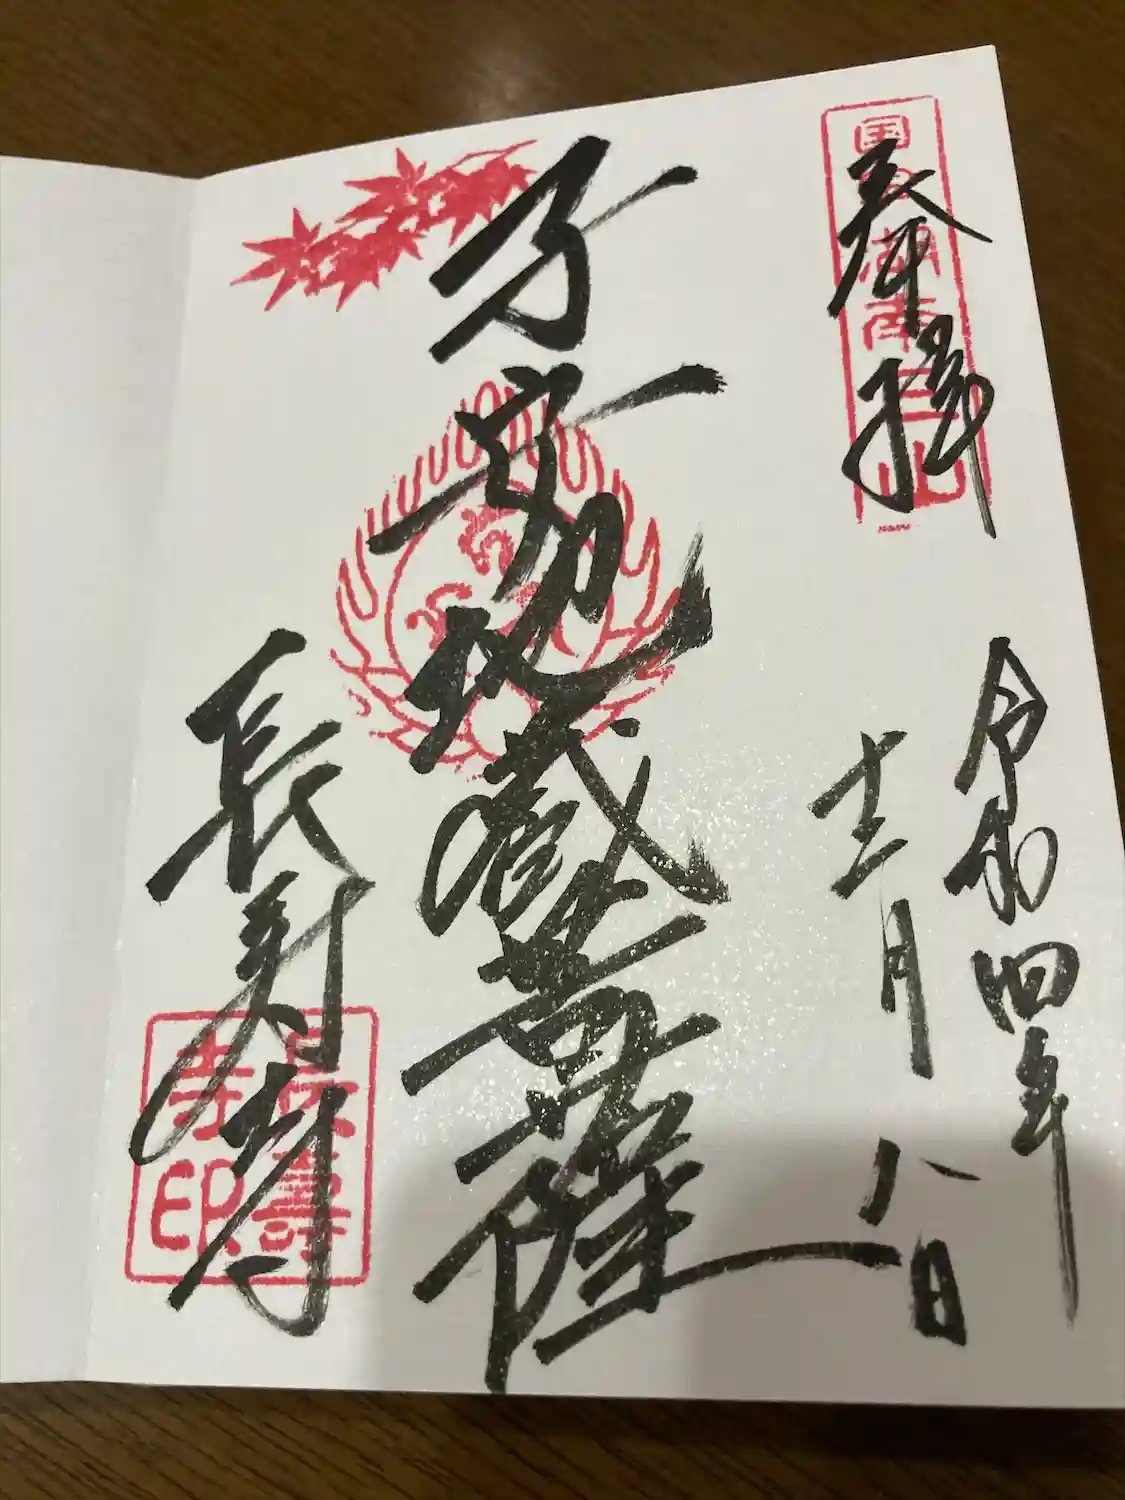 奉拝
国宝湖南三山
令和四年
十一月八日
子安地蔵菩薩
長寿寺
長壽寺印